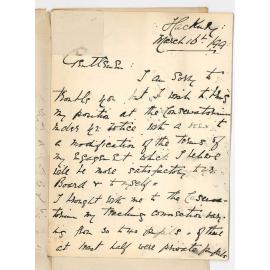 Hackney:
March 10th 1909
Gentlemen:
I am sorry to
trouble you but I wish to bring
my position at the Conservatorium
under yr notice with a view to
a modification of the terms of
my Engagement, which I believe
will be more satisfactory to
Board & to myself.
I brought with me to the Conserva-
torium my teaching connection
from 50 to pupils - of these
at most half were private pupils